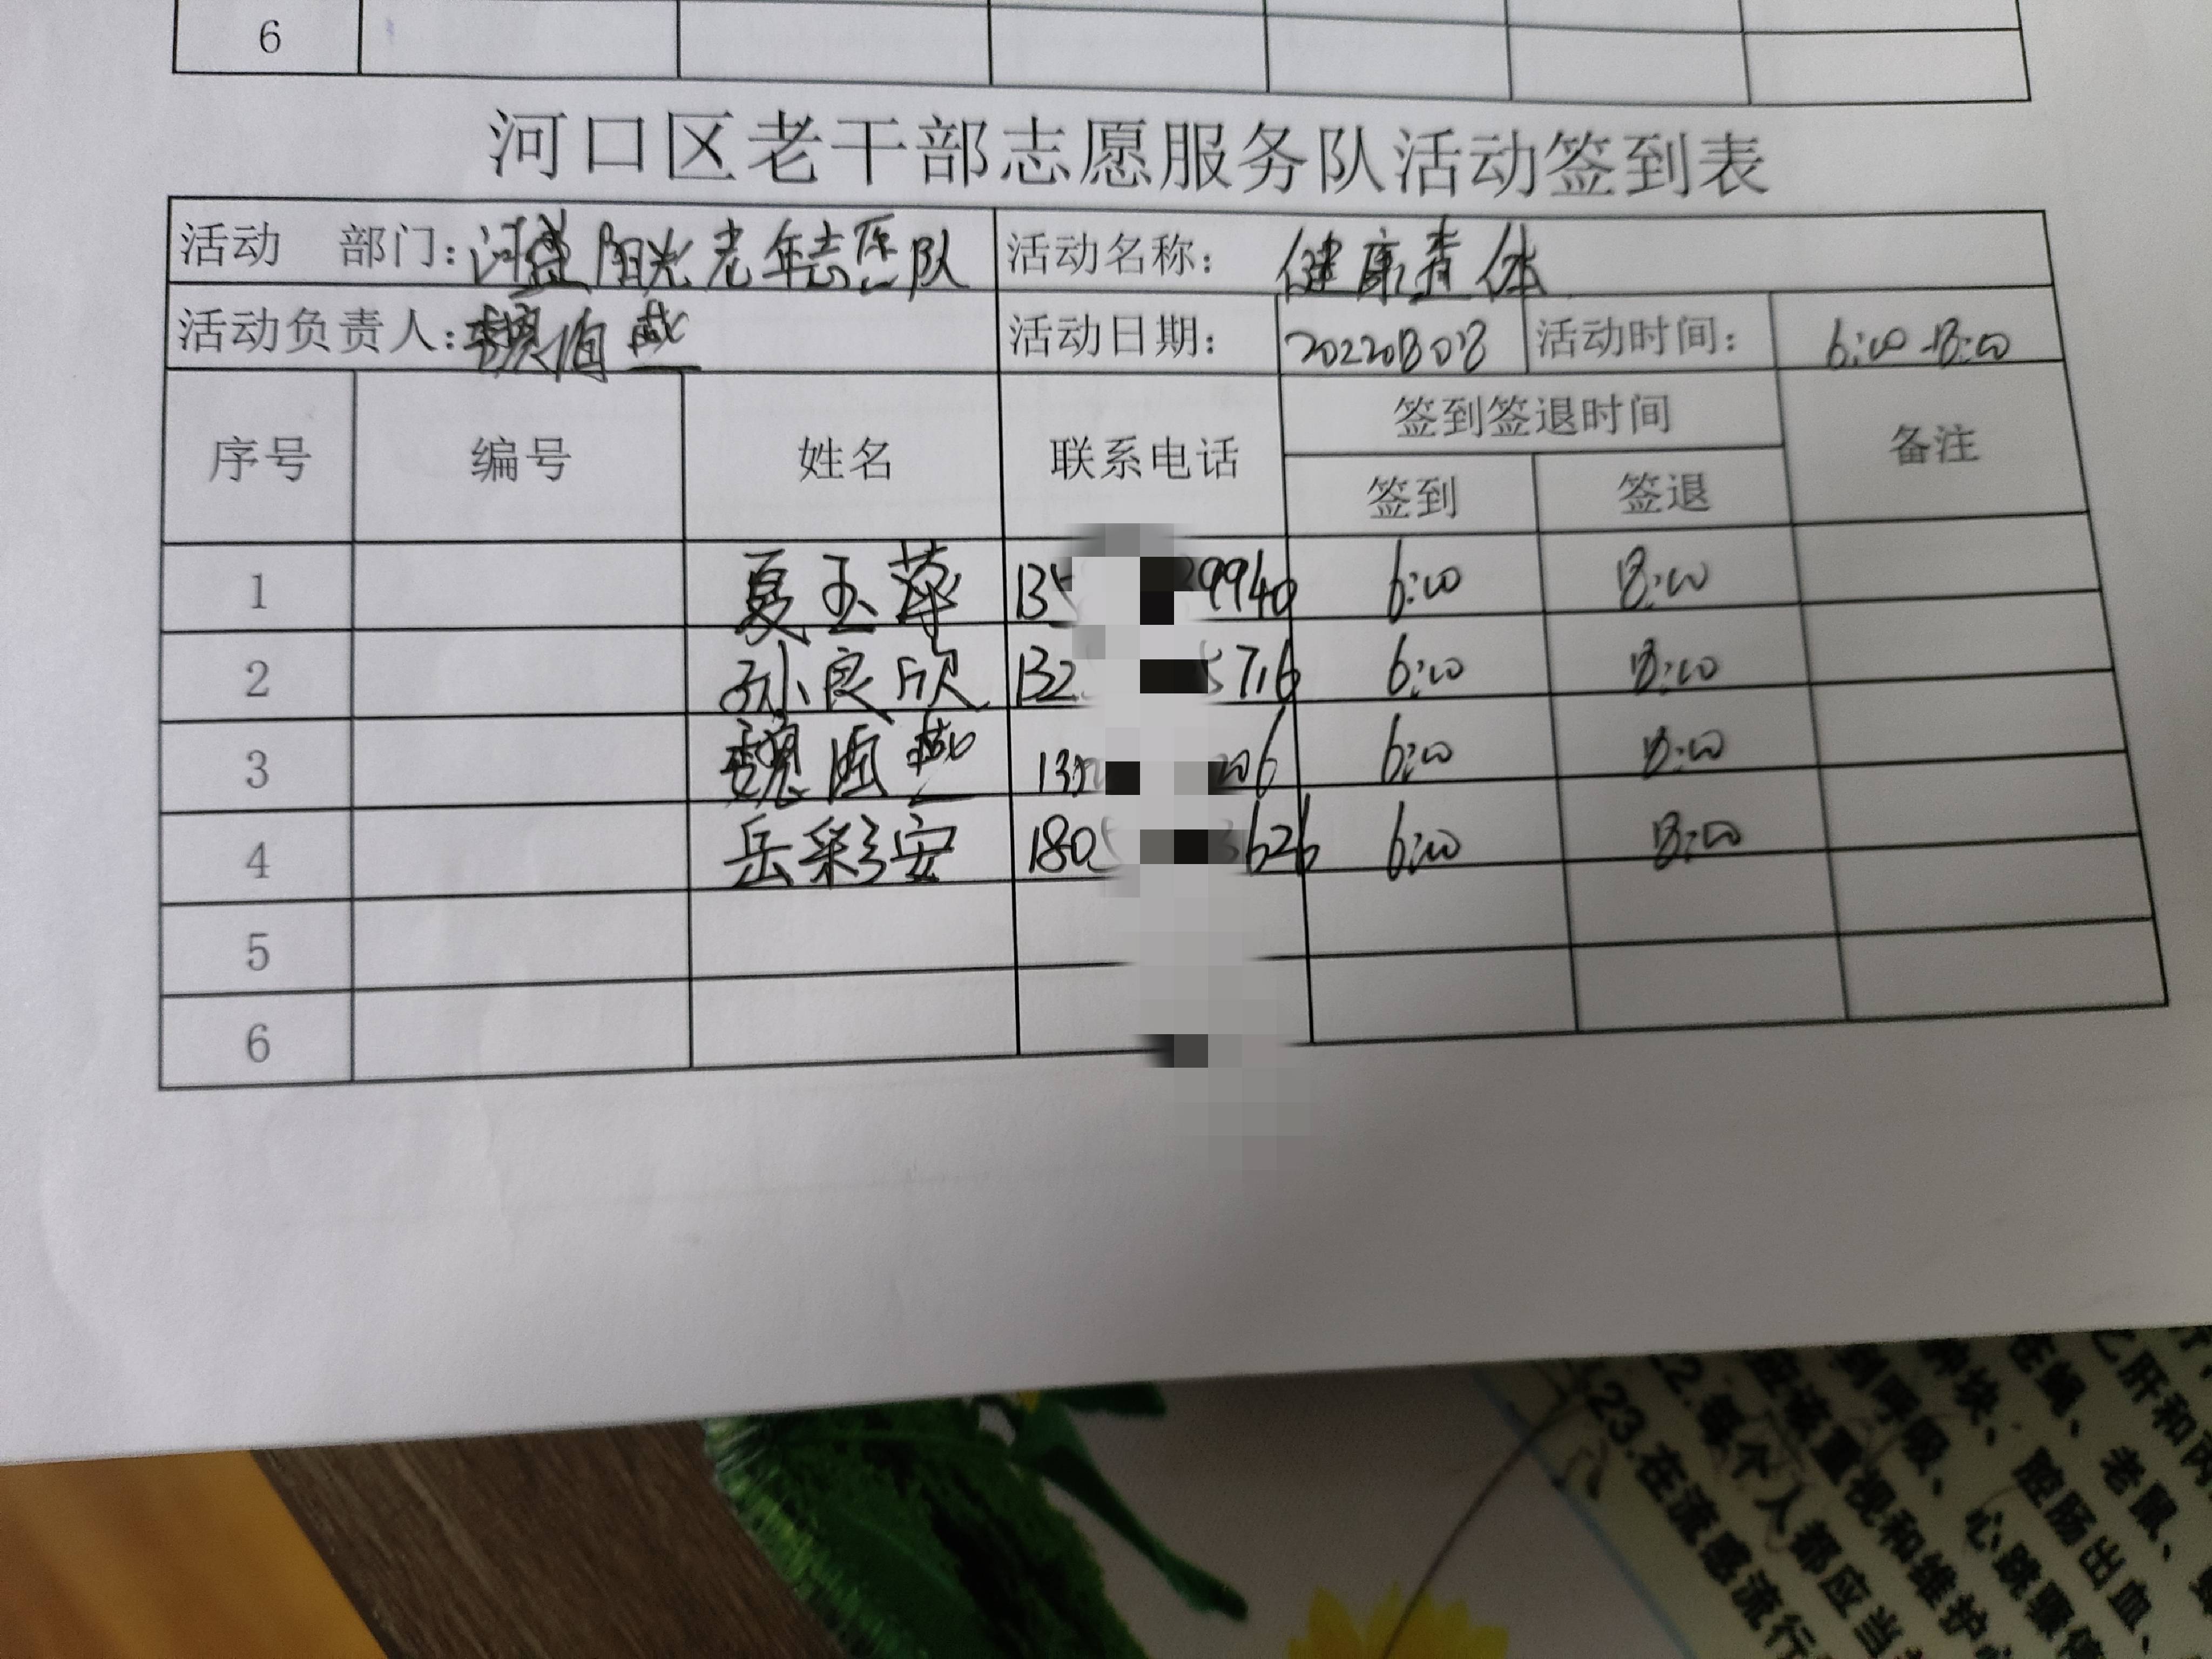 6
河口区老干部志愿服务队活动签到表
活动 部门：河盛阳光老年志愿队 活动名称： 健康查体
活动负责人：魏 燕 活动日期： 活动时间： 6:00-18:00
序号 编号 姓名 联系电话 签到签退时间 备注
签到 签退
1 夏玉萍 135 29940 6:00 18:00
2 孙良欣 132 5716 6:00 18:00
3 魏 燕 206 6:00 18:00
4 岳彩安 1805 3626 6:00 18:00
5
6
22.每个人都应当
应该重视和维护心
23.在流感流行
到呼吸、心跳骤停
肿块、腔肠出血、
在蝇、老鼠、
乙肝和丙